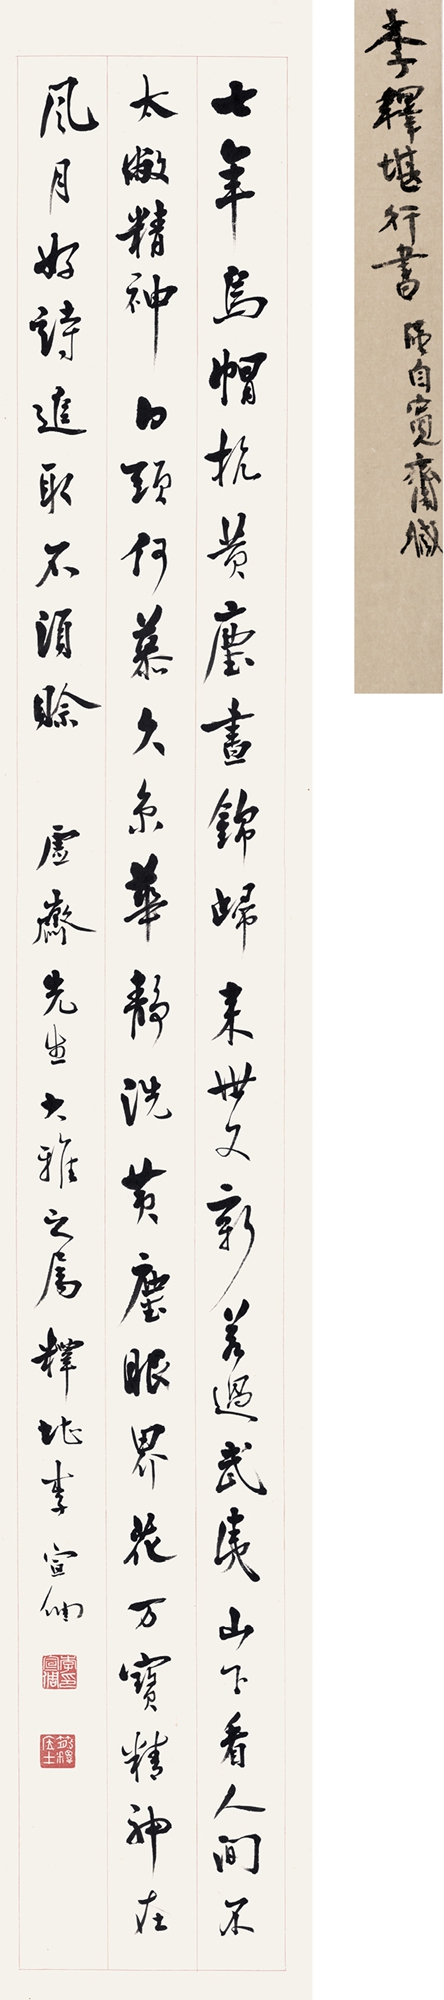 李釋堪行書 自寬齋臧
七年烏帽抗黃塵晝錦歸來世又新若過武夷山下看人間不
太精神白頭何慕久京華靜洗黃塵眼界花万寶精神在
風月好詩進取不須賒 虛齋先生大雅之屬 釋堪李宣倜